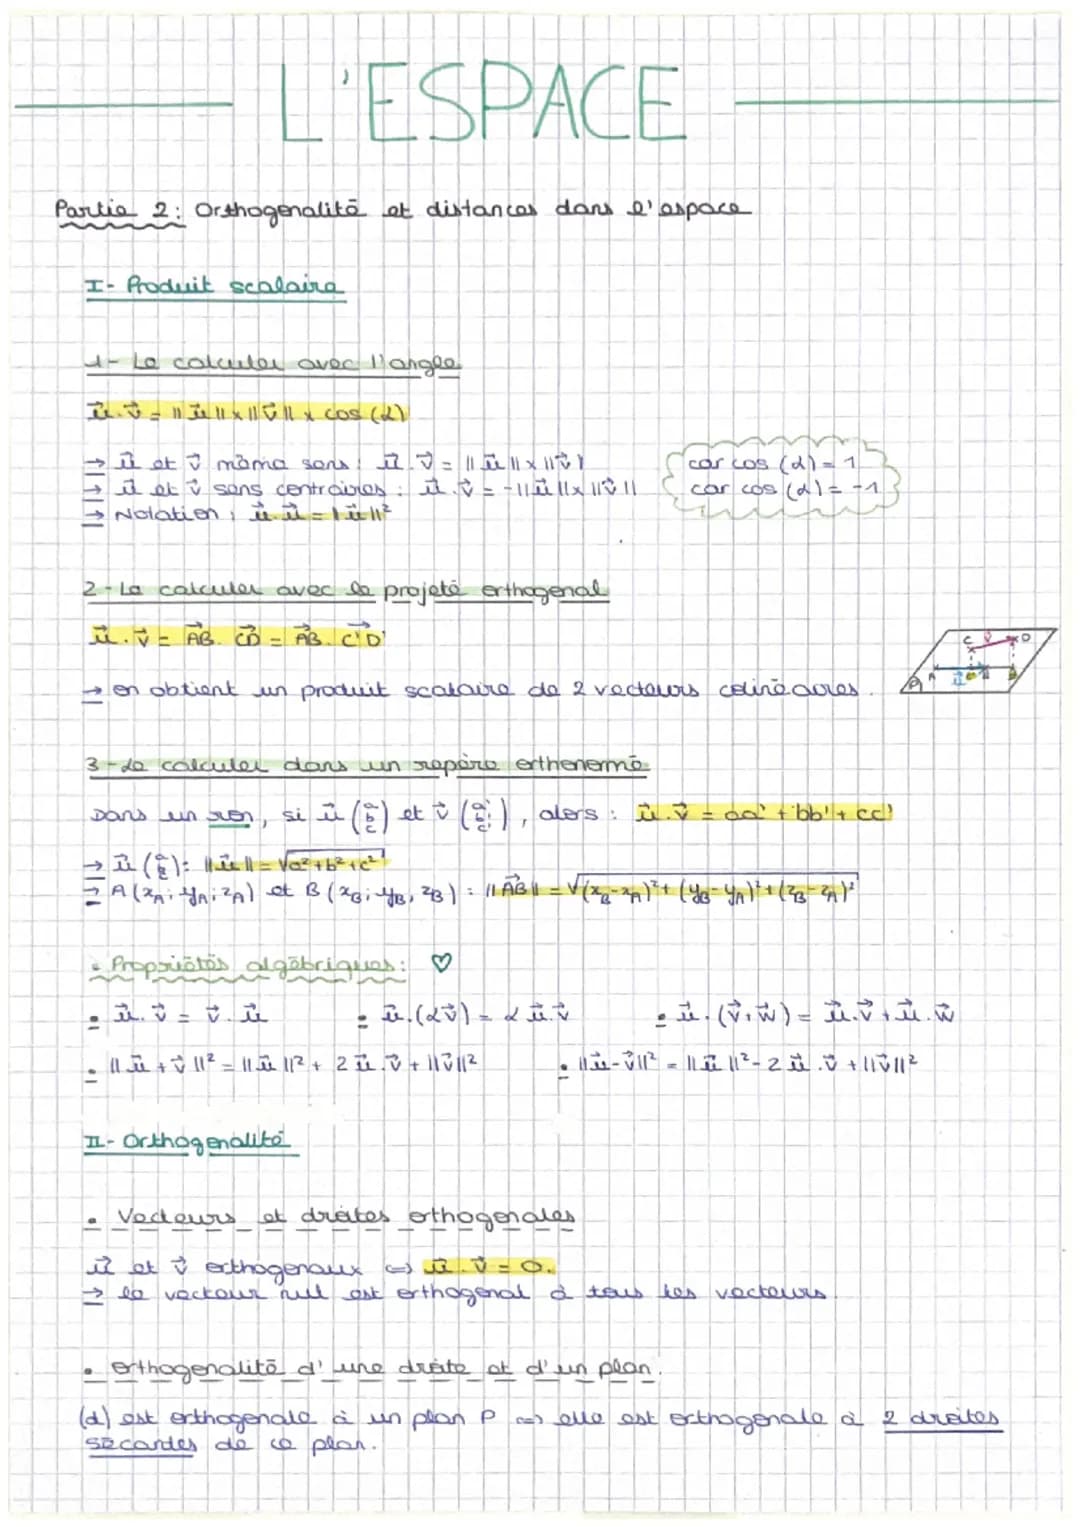 L'ESPACE
Partie 2: Orthogonalité et distances dans l'espace
I- Produit scalaire
1- Le calculer avec l'angle
u⃗.v⃗ = ||u⃗|| x ||v⃗|| x cos (α)
→ u⃗ et v⃗ même sens : u⃗.v⃗ = ||u⃗|| x ||v⃗||
car cos (α) = 1
→ u⃗ et v⃗ sens contraires : u⃗.v⃗ = -||u⃗|| x ||v⃗||
car cos (α) = -1
→ Notation : u⃗.u⃗ = ||u⃗||²
2- Le calculer avec le projeté orthogonal
u⃗.v⃗ = AB⃗. CD⃗ = AB⃗. C'D'⃗
→ on obtient un produit scalaire de 2 vecteurs colinéaires.
C v⃗ D
P A u⃗ B
3- Le calculer dans un repère orthonormé
Dans un ron, si u⃗ (a b c) et v⃗ (a' b' c'), alors : u⃗.v⃗ = aa' + bb' + cc'
→ u⃗ (a b c): ||u⃗|| = √a²+b²+c²
→ A (xA; yA; zA) et B (xB; yB, zB) : ||AB⃗|| = √(xB-xA)²+(yB-yA)²+(zB-zA)²
• Propriétés algébriques: ♡
• u⃗.v⃗ = v⃗.u⃗ • u⃗.(αv⃗) = α u⃗.v⃗ • u⃗.(v⃗+w⃗) = u⃗.v⃗ + u⃗.w⃗
• ||u⃗ + v⃗||² = ||u⃗||² + 2 u⃗.v⃗ + ||v⃗||² • ||u⃗-v⃗||² = ||u⃗||² - 2 u⃗.v⃗ + ||v⃗||²
II- Orthogonalité
• Vecteurs et droites orthogonales
u⃗ et v⃗ orthogonaux ⇔ u⃗.v⃗ = 0.
→ le vecteur nul est orthogonal à tous les vecteurs.
• Orthogonalité d'une droite et d'un plan.
(d) est orthogonale à un plan P ⇔ elle est orthogonale à 2 droites
sécantes de ce plan.